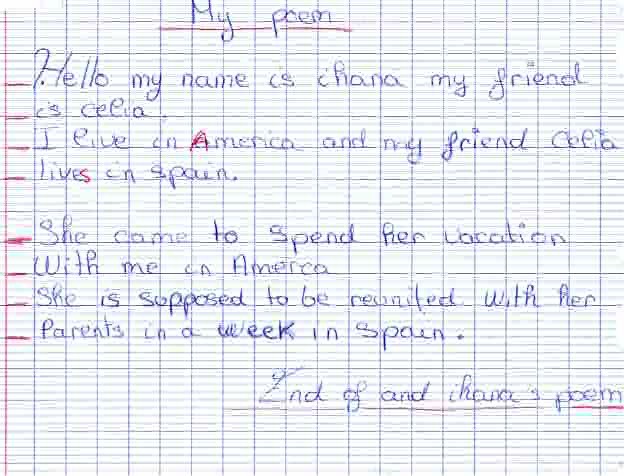 My poem
Hello my name is ihana my friend
is celia.
I live in America and my friend Celia
lives in spain.
She came to spend her vacation
With me in America
She is supposed to be reunited With her
Parents in a week in spain.
End of and ihana's poem